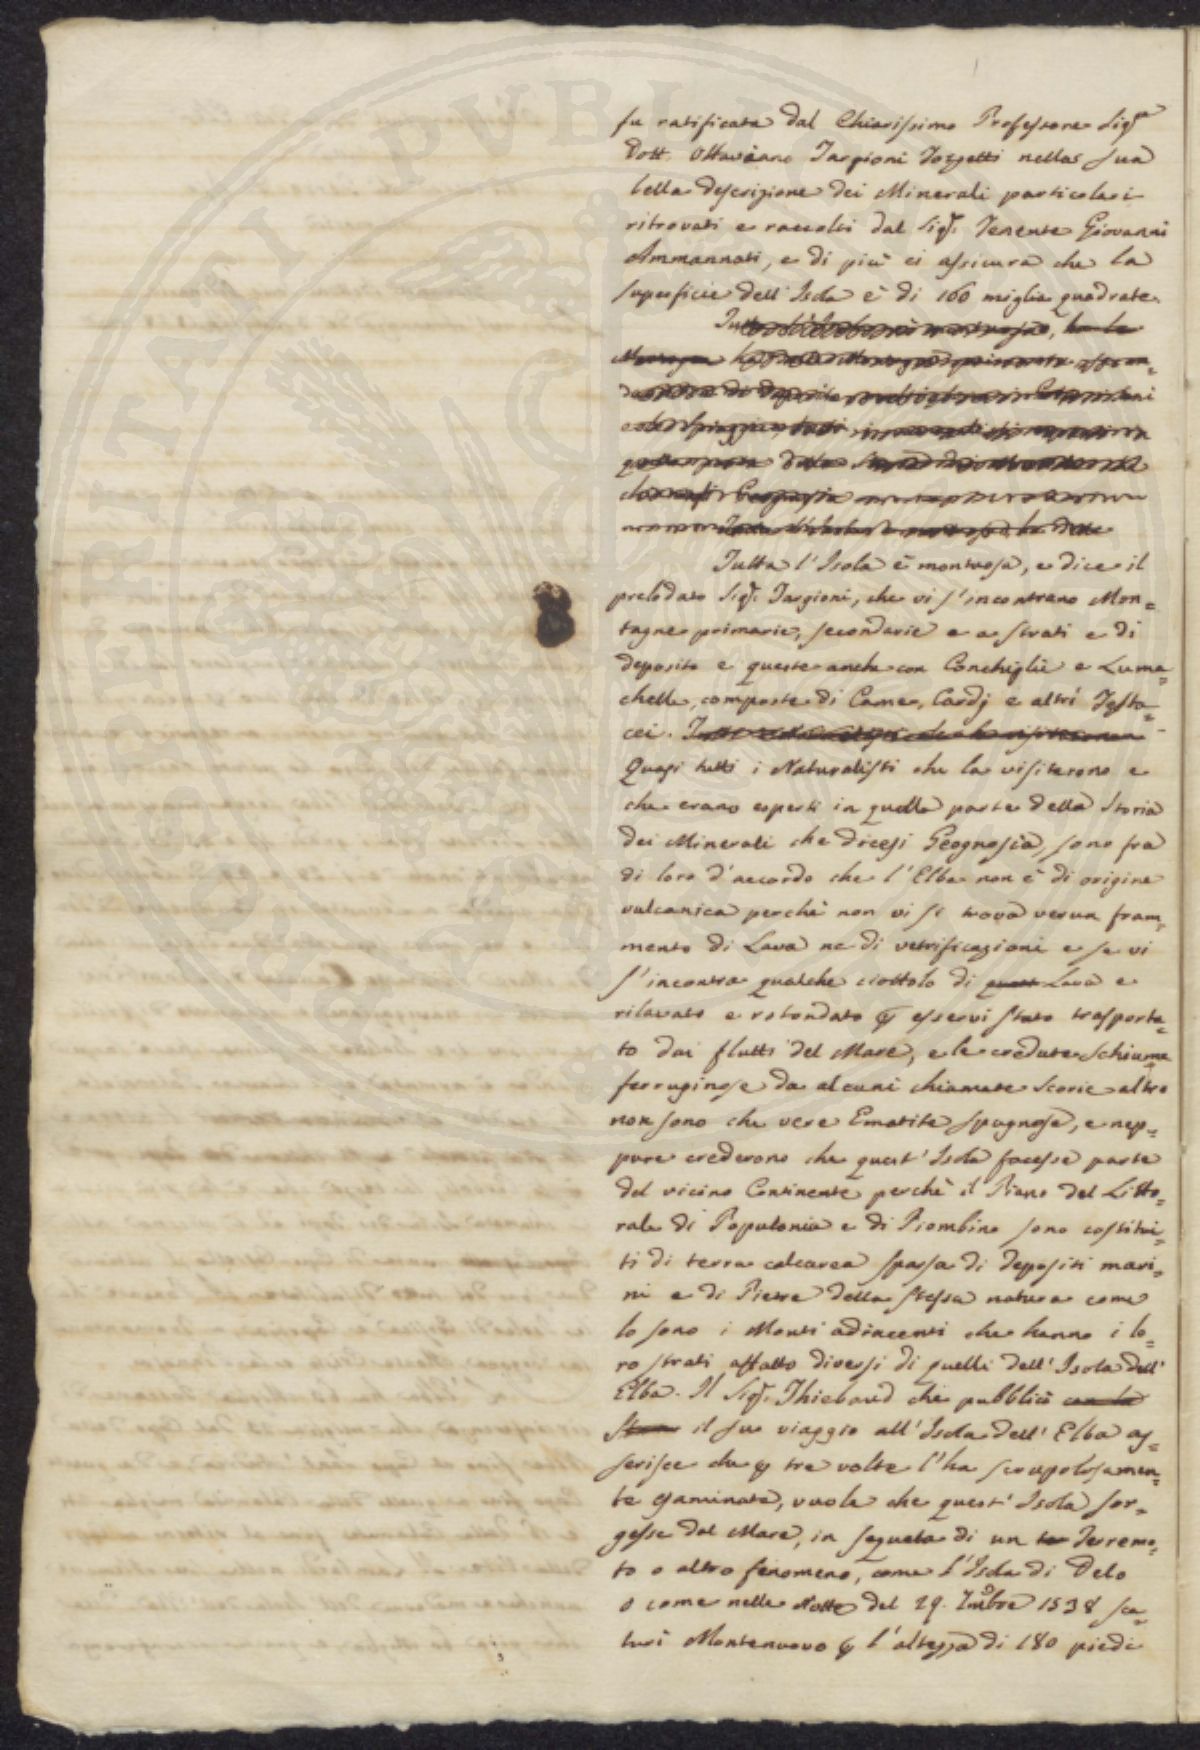 fu ratificata dal Chiarissimo Professore Sigr
Dott. Ottaviano Targioni Tozzetti nella sua
bella descrizione dei Minerali particolari
ritrovati e raccolti dal Sigr. Tenente Giovanni
Ammannati, e di più ci assicura che la
superficie dell'Isola è di 160 miglia quadrate.
Tutta l'Isola è montuosa, e dice il
prelodato Sigr. Targioni, che vi s'incontrano Mon=
tagne primarie, secondarie e a strati e di
deposito e queste anche con Conchiglie e Luma=
chelle, composte di Came, Cardj e altri Testa=
cei.
Quasi tutti i Naturalisti che la visiterono e
che erano esperti in quella parte della Storia
dei Minerali che dicesi Geognosia, sono fra
di loro d'accordo che l'Elba non è di origine
vulcanica perchè non vi si trova verun fram=
mento di Lava ne di vetrificazioni e se vi
s'incontra qualche ciottolo di Lava e
rilavato e rotondato p esservi stato trasporta=
to dai flutti del Mare, e le credute Schiume
ferruginose da alcuni chiamate Scorie altro
non sono che vere Ematite spugnose, e nep=
pure crederono che quest'Isola facesse parte
del vicino Continente perchè il Piano del Litto=
rale di Populonia e di Piombino sono costitui=
ti di terra calcarea sparsa di depositi mari=
ni e di Pietre della stessa natura come
lo sono i Monti adiacenti che hanno i lo=
ro strati affatto diversi di quelli dell'Isola dell'
Elba. Il Sigr. Thiebaud che pubblicò con la
il suo viaggio all'Isola dell'Elba as=
serisce che p tre volte l'ha scrupolosamen=
te esaminata, vuole che quest'Isola sor=
gesse dal Mare, in sequela di un ter Terremo=
to o altro fenomeno, come l'Isola di Delo
o come nella Notte del 29. 7mbre 1538 sca=
turì Montenuovo p l'altezza di 180 piedi